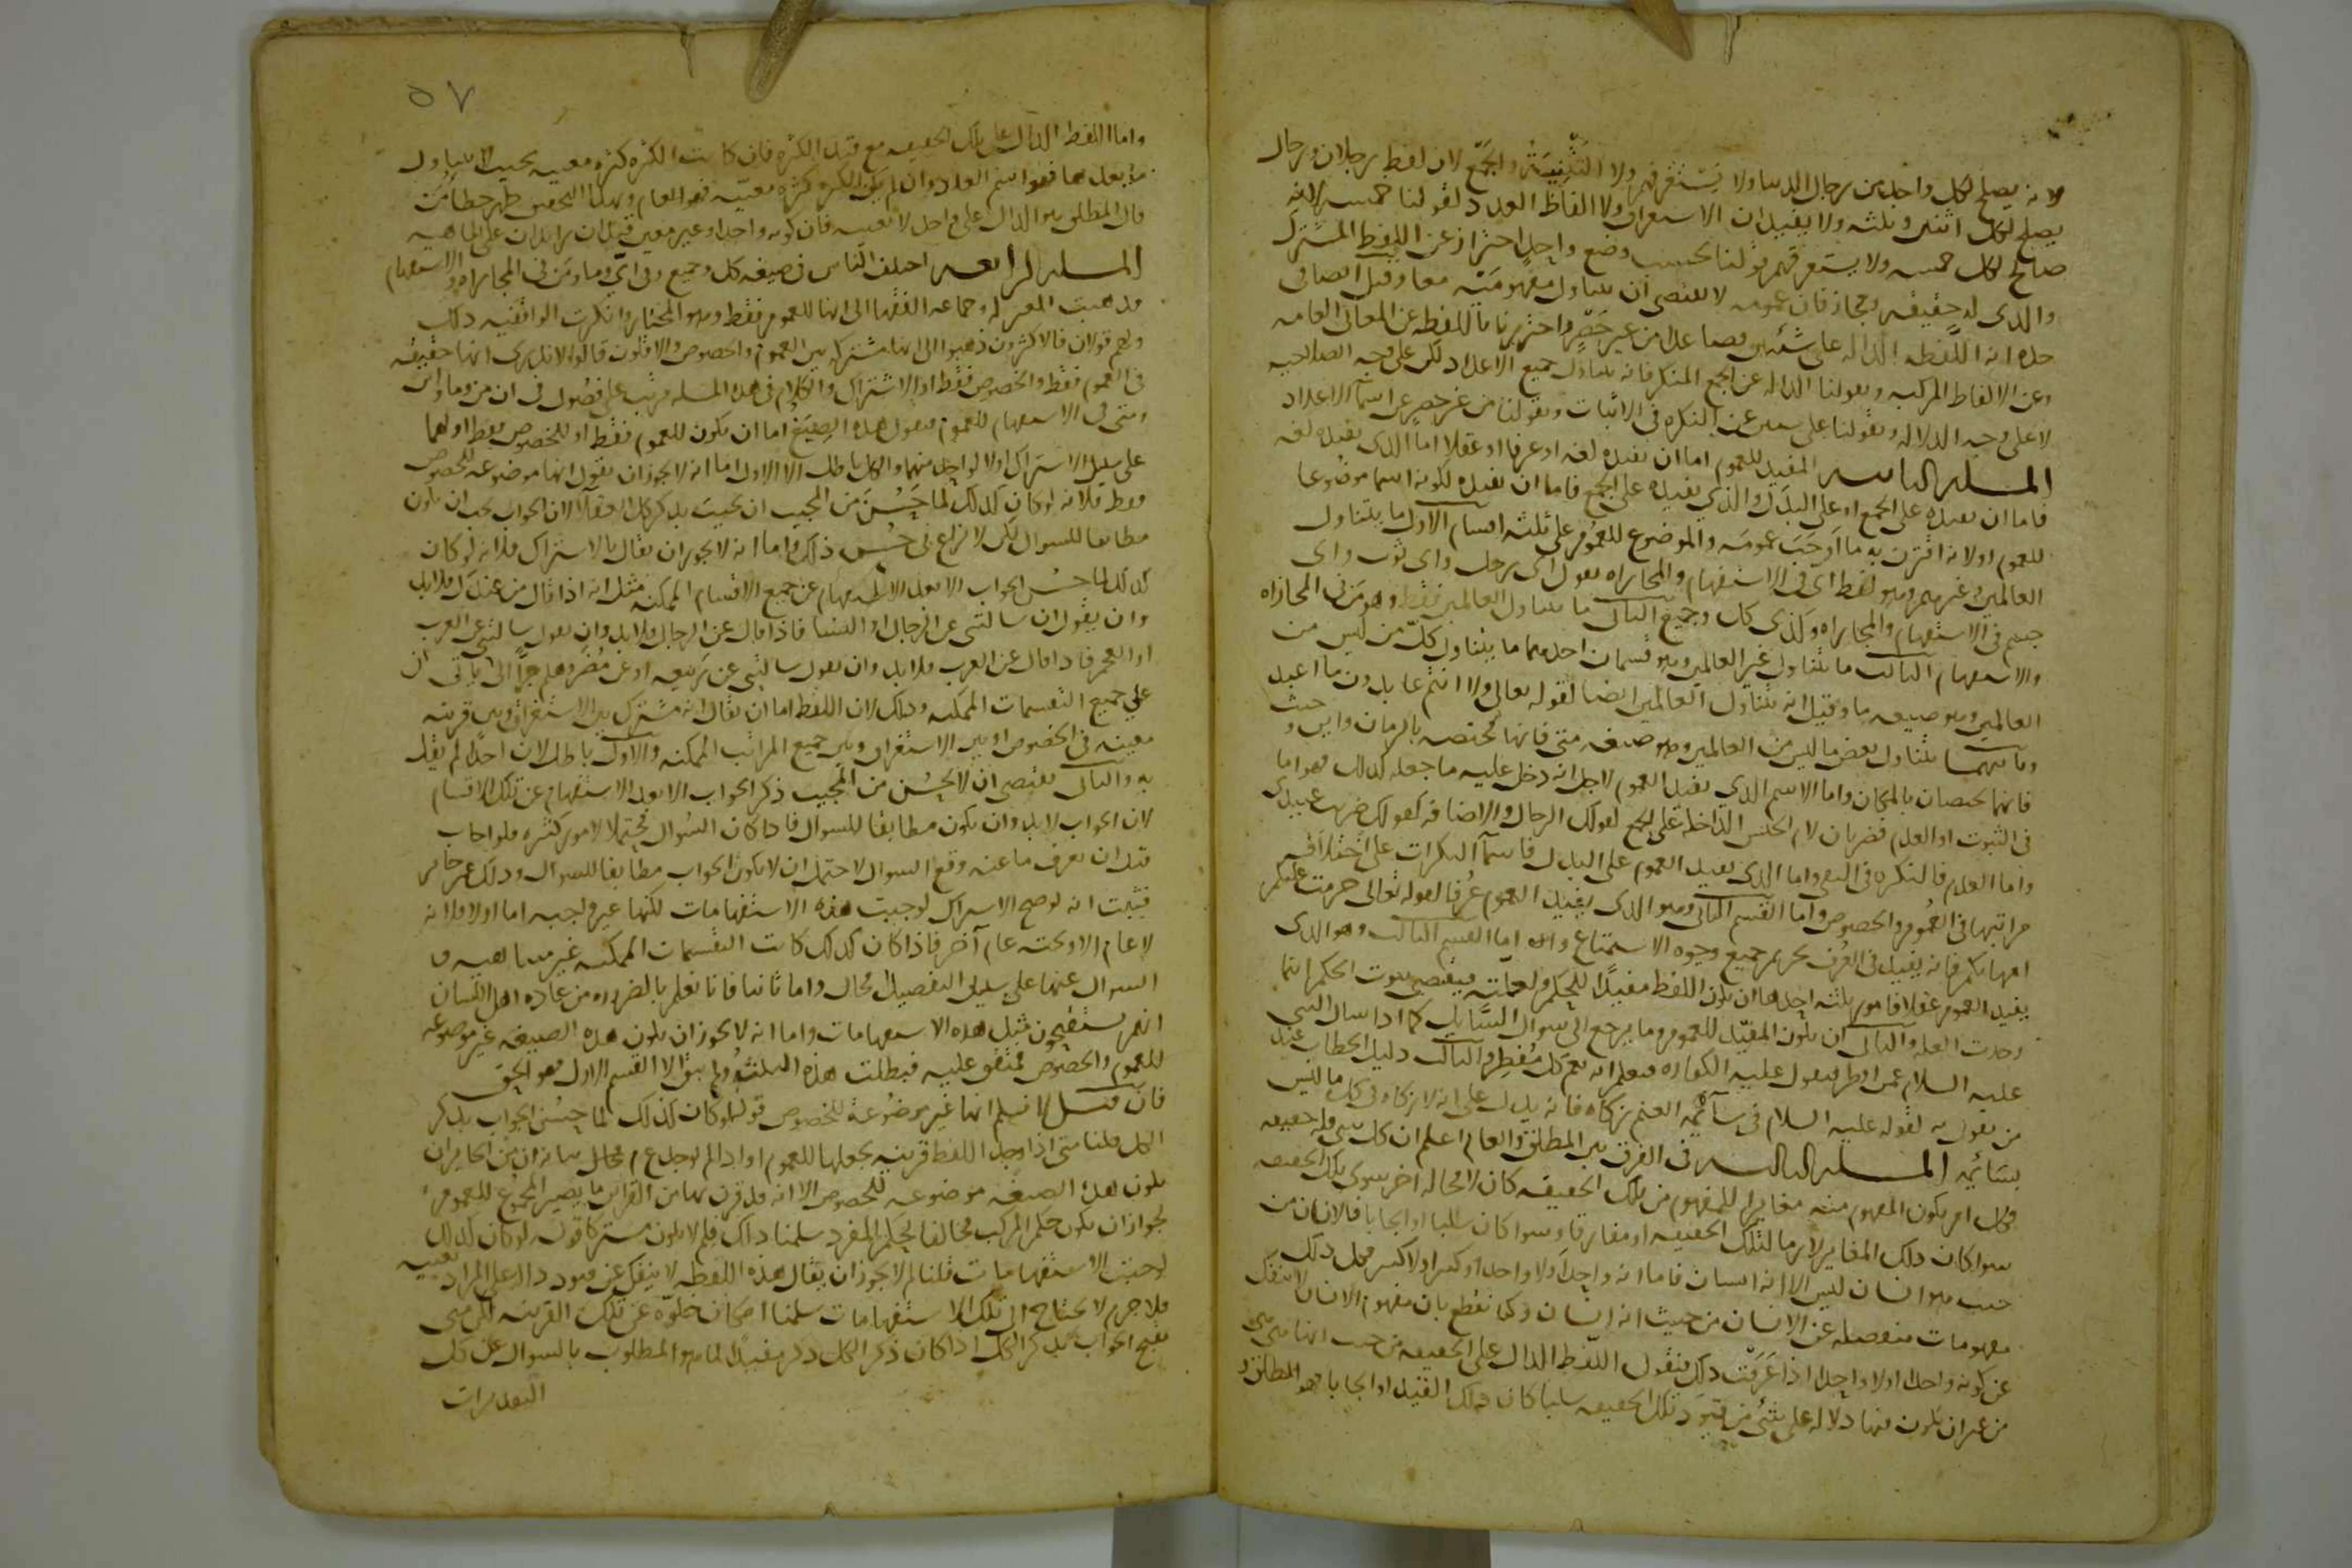 لانه يصلح لكل واحد من رجال الدنيا ولا يستغرقهم ولا التثنية والجمع لان لفظ رجلان ورجال
يصلح لكل اثنين وثلثه ولا يفيدان الاستغراق ولا الفاظ العدد لقولنا خمسه لانه
صالح لكل خمسه ولا يستغرقهم وقولنا بحسب وضع واحد احتراز عن اللفظ المشترك
والدى له حقيقه ومجاز فان عمومه لا يقتضى ان يتناول مفهوميه معا وقيل ايضا فى
حده انه اللفظه الداله على شيئين فصاعدا من غير حصر واحترزنا باللفظه عن المعانى العامه
وعن الالفاظ المركبه وبقولنا الداله عن الجمع المنكر فانه يتناول جميع الاعداد لكن على وجه الصلاحيه
لا على وجه الدلاله وبقولنا على شيئين عن النكره فى الاثبات وبقولنا من غير حصر عن اسما الاعداد
المسله الثانيه المفيد للعموم اما ان يفيده لغه او عرفا او عقلا اما الدى يفيده لغه
فاما ان يفيده على الجمع او على البدل والذى يفيده على الجمع فاما ان يفيده لكونه اسما موضوعا
للعموم او لانه اقترن به ما اوجب عمومه والموضوع للعموم على ثلثه اقسام الاول ما يتناول
العالمين وغيرهم وهو لفظ اى فى الاستفهام والمجازاه تقول اى رجل واى ثوب واى
جسم فى الاستفهام والمجازاه وكذى كل وجميع الثانى ما يتناول العالمين فقط وهو من فى المجازاه
والاستفهام الثالث ما يتناول غير العالمين وهو قسمان احدهما ما يتناول كل من ليس من
العالمين وهو صيغه ما وقيل انه يتناول العالمين ايضا لقوله تعالى ولا انتم عابدون ما اعبد
وثانيهما يتناول بعض ما ليس من العالمين وهو صيغه متى فانها مختصه بالزمان واين وحيث
فانهما يختصان بالمكان واما الاسم الدى يفيد العموم لاجل انه دخل عليه ما جعله كدلك فهو اما
فى الثبوت او العدم فضربان لام الجنس الداخله على الجمع لقولك الرجال والاضافه كقولك ضربت عبيدى
واما العدم فالنكره فى النفى واما الدى يفيد العموم على البدل فاسمآ النكرات على اختلاف
مراتبها فى العموم والخصوص واما القسم الثانى وهو الدى يفيد العموم عرفا لقوله تعالى حرمت عليكم
امهاتكم فانه يفيد فى العرف تحريم جميع وجوه الاستمتاع واما القسم الثالث وهو الدى
يفيد العموم عقلا فامور ثلثه احدها ان يكون اللفظ مفيدا للحكم ولعلته فيقتضى ثبوت الحكم اينما
وجدت العله والثانى ان يكون المفيد للعموم ما يرجع الى سوال السايل كما اذا سال النبى
عليه السلام عمن افطر فيقول عليه الكفاره فيعلم انه يعم كل مفطر والثالث دليل الخطاب عند
من يقول به لقوله عليه السلام فى سآئمه الغنم زكاه فانه يدل على انه لا زكاه فى كل ما ليس
بسائمه المسله الثالثه فى الفرق بين المطلق والعام اعلم ان كل شى فله حقيقه
فكل امر يكون المفهوم منه مغايرا للمفهوم من تلك الحقيقه كان لا محاله اخر سوى تلك الحقيقه
سوا كان دلك المغاير لازما لتلك الحقيقه او مفارقا وسوا كان سلبا او ايجابا فالانسان من
حيث هو انسان ليس الا انه انسان فاما انه واحد او لا واحد او كثير او لا كثير فكل دلك
مفهومات منفصله عن الانسان من حيث انه انسان وكنا نقطع بان مفهوم الانسان لا ينفك
عن كونه واحدا او لا واحدا اذا عرفت دلك فنقول اللفظ الدال على الحقيقه من حيث انها هى هى
من غير ان يكون فيها دلاله على شئ من قيود تلك الحقيقه سلبا كان دلك القيد او ايجابا فهو المطلق و
٥٧
واما اللفظ الدال على تلك الحقيقه مع قيد الكثره فان كانت الكثره كثره معينه بحيث لا يتناول
ما بعدها فهو اسم العدد وان لم يكن الكثره كثره معينه فهو العام وبهذا التحقيق ظهر خطا من
قال المطلق هو الدال على واحد لا بعينه فان كونه واحدا وغير معين قيدان زايدان على الماهيه
المسله الرابعه اختلف الناس فى صيغه كل وجميع وفى اى وما ومن فى المجازاه والاستفهام
فدهبت المعتزله وجماعه الفقها الى انها للعموم فقط وهو المختار وانكرت الواقفيه دلك
ولهم قولان فالاكثرون ذهبوا الى انها مشتركه بين العموم والخصوص والاقلون قالوا لا ندرى انها حقيقه
فى العموم فقط والخصوص فقط او الاشتراك والكلام فى هذه المسله مرتب على فصول فى ان من وما واين
ومتى فى الاستفهام للعموم فنقول هذه الصيغ اما ان يكون للعموم فقط او للخصوص فقط او لهما
على سبيل الاشتراك او لا لواحد منهما والكل باطل الا الاول اما انه لا يجوز ان يقول انها موضوعه للخصوص
فقط فلانه لو كان كدلك لما حسن من المجيب ان يجيب بدكر كل العقلا لان الجواب يجب ان يكون
مطابقا للسوال لكن لا نزاع فى حسن ذلك واما انه لا يجوز ان يقال بالاشتراك فلانه لو كان
كدلك لما حسن الجواب الا بعد الاستفهام عن جميع الاقسام الممكنه مثل انه اذا قال من عندك فلا بد
وان يقول ان سالتنى عن الرجال او النسا فاذا قال عن الرجال فلا بد وان يقول سالتنى عن العرب
او العجم فاذا قال عن العرب فلا بد وان يقول سالتنى عن ربيعه او عن مضر وهلم جرا الى ان ياتى
على جميع التقسيمات الممكنه ودلك لان اللفظ اما ان يقال انه مشترك بين الاستغراق وبين قرينه
معينه فى الخصوص او بين الاستغراق وبين جميع المراتب الممكنه والاول باطل لان احدا لم يقل
به والثانى يقتضى ان لا يحسن من المجيب ذكر الجواب الا بعد الاستفهام عن تلك الاقسام
لان الجواب لا بد وان يكون مطابقا للسوال فاذا كان السوال محتملا لامور كثيره فلو اجاب
قبل ان يعرف ما عنه وقع السوال لاحتمل ان لا يكون الجواب مطابقا للسوال ودلك غير جايز
فثبت انه لو صح الاشتراك لوجبت هذه الاستفهامات لكنها غير واجبه اما اولا فلانه
لا عام الا وتحته عام آخر فاذا كان كدلك كانت التقسيمات الممكنه غير متناهيه و
السوال عنها على سبيل التفصيل محال واما ثانيا فانا نعلم بالضروره من عاده اهل اللسان
انهم يستقبحون مثل هذه الاستفهامات واما انه لا يجوز ان يكون هذه الصيغه غير موضوعه
للعموم والخصوص فمتفق عليه فبطلت هذه الثلثه ولم يبق الا القسم الاول وهو الحق
فان قيل لا نسلم انها غير موضوعة للخصوص قوله لو كان كذلك لما حسن الجواب بدكر
الكل قلنا متى اذا وجد اللفظ قرينه يجعلها للعموم او اذا لم يوجد ع م بيانه ان من الجايز ان
يكون هذه الصيغه موضوعه للخصوص الا انه قد قرن بها من القراين ما يصير المجموع للعموم
لجواز ان يكون حكم المركب مخالفا لحكم المفرد سلمنا ذلك فلم لا يكون مشتركا قوله لو كان كدلك
لوجبت الاستفهامات قلنا لم لا يجوز ان يقال هذه اللفظه لا ينفك عن قيود داله على المراد بعينه
فلا جرم لا يحتاج الى تلك الاستفهامات سلمنا امكان خلوه عن تلك القرينه لكن متى
يقبح الجواب بدكر الكل اذا كان ذكر الكل ذكر مفيدا لما هو المطلوب بالسوال على كل
التقديرات